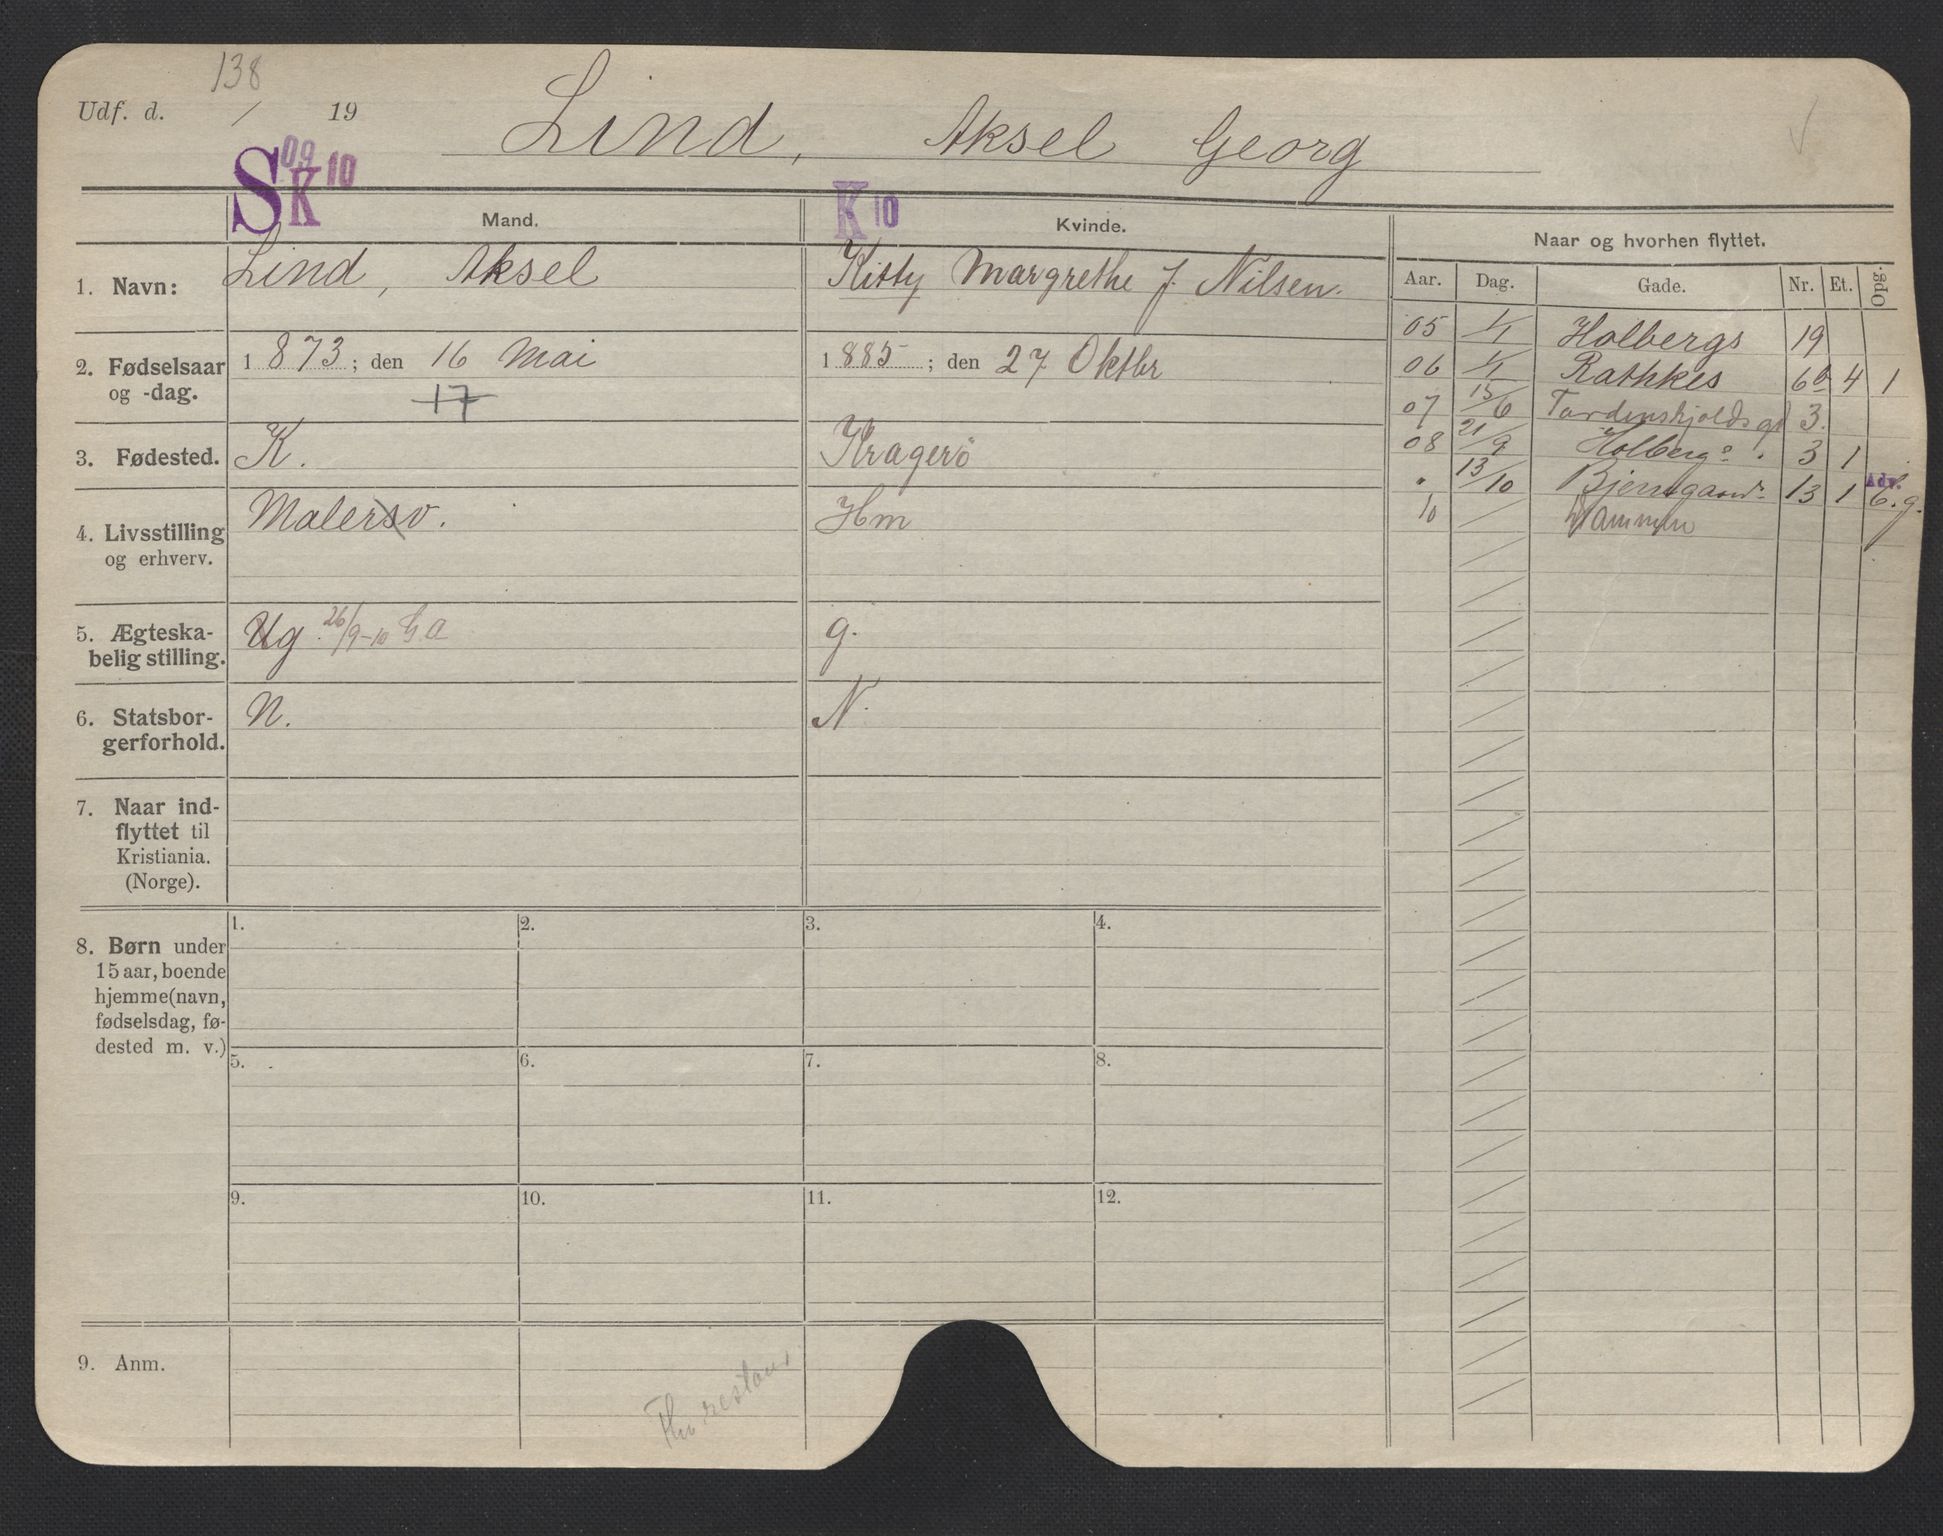 138
Udf. d. / 19
Lind, Aksel Georg
S 09 K 10
K 10
Mand.
Kvinde.
Naar og hvorhen flyttet.
Aar. Dag. Gade. Nr. Et. Opg.
1. Navn: Lind, Aksel
Kitty Margrethe J. Nilsen.
2. Fødselsaar og -dag.
1873; den 16 Mai
17
1885; den 27 Oktbr
3. Fødested. K.
Kragerö
4. Livsstilling og erhverv.
Malersv.
Hm
5. Ægteska-
belig stilling.
Ug. 26/9-10 G.a
g.
6. Statsbor-
gerforhold.
N.
N.
7. Naar ind-
flyttet til
Kristiania.
(Norge).
8. Børn under
15 aar, boende
hjemme (navn,
fødselsdag, fø-
dested m. v.)
1. 2. 3. 4.
5. 6. 7. 8.
9. 10. 11. 12.
9. Anm.
05 1/1 Holbergs 19
06 1/1 Rathkes 6b 4 1
07 15/6 Tordenskjolds gt 3.
08 21/9 Holbergs 3 1
" 13/10 13 1 Adv. g.
10 / Drammen